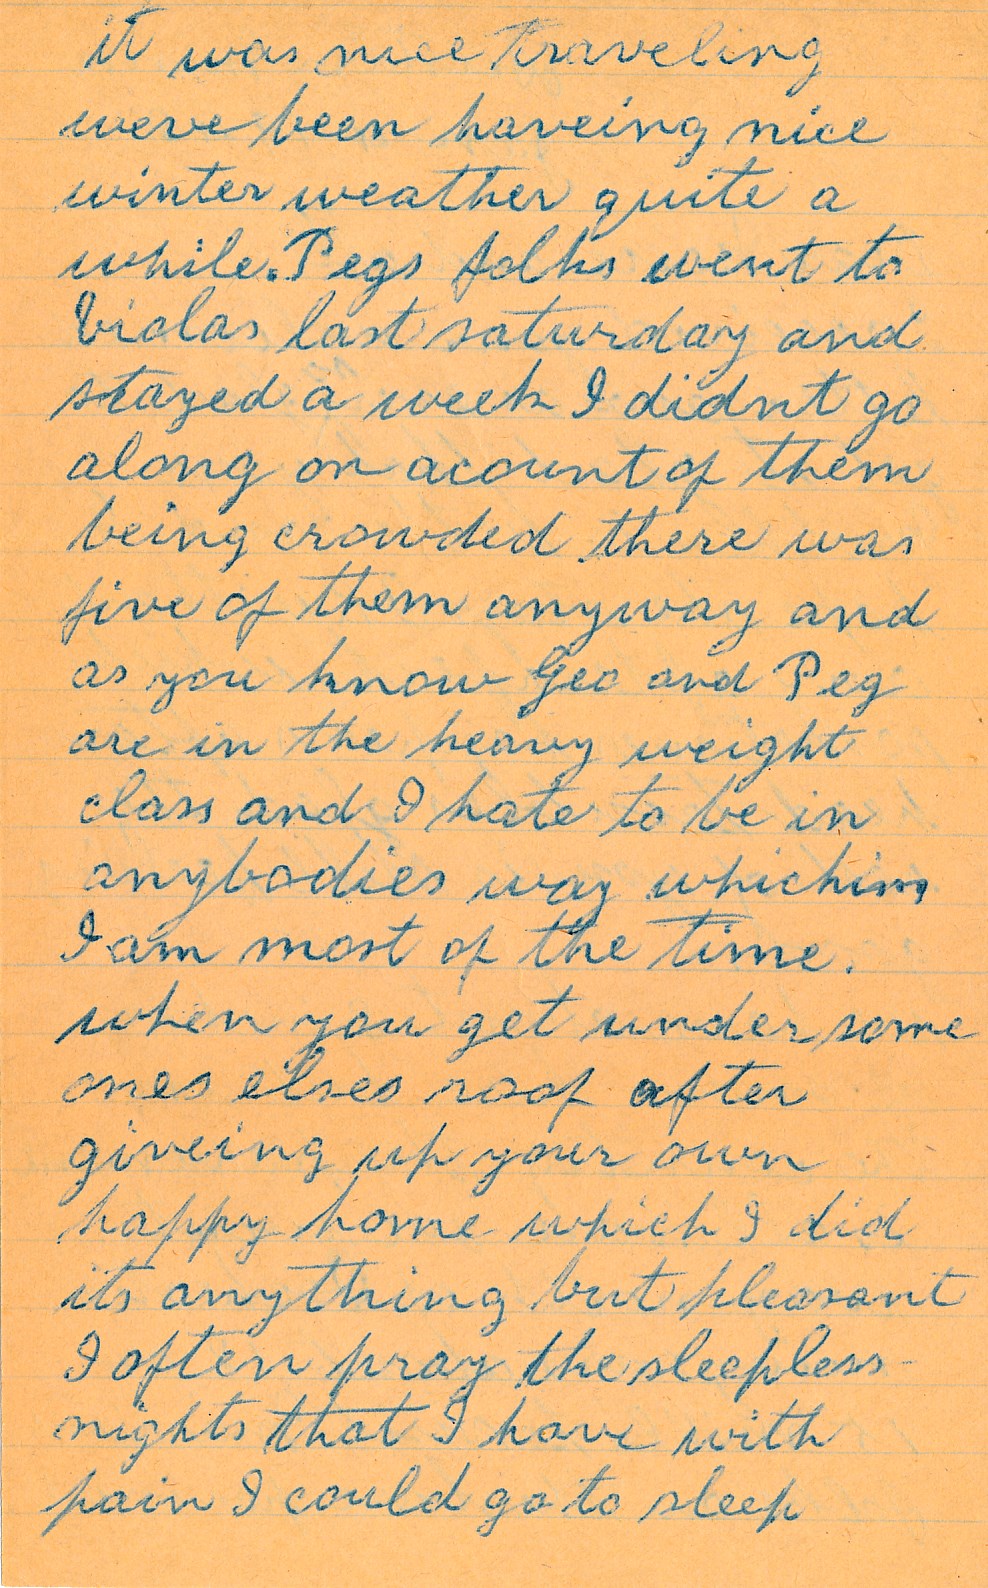 it was nice traveling
weve been haveing nice
winter weather quite a
while. Pegs folks went to
Violas last saturday and
stayed a week I didnt go
along on acount of them
being crowded there was
five of them anyway and
as you know Geo and Peg
are in the heavy weight
class and I hate to be in
anybodies way which
I am most of the time.
when you get under some
ones elses roof after
giveing up your own
happy home which I did
its anything but pleasant
I often pray the sleepless
nights that I have with
pain I could go to sleep